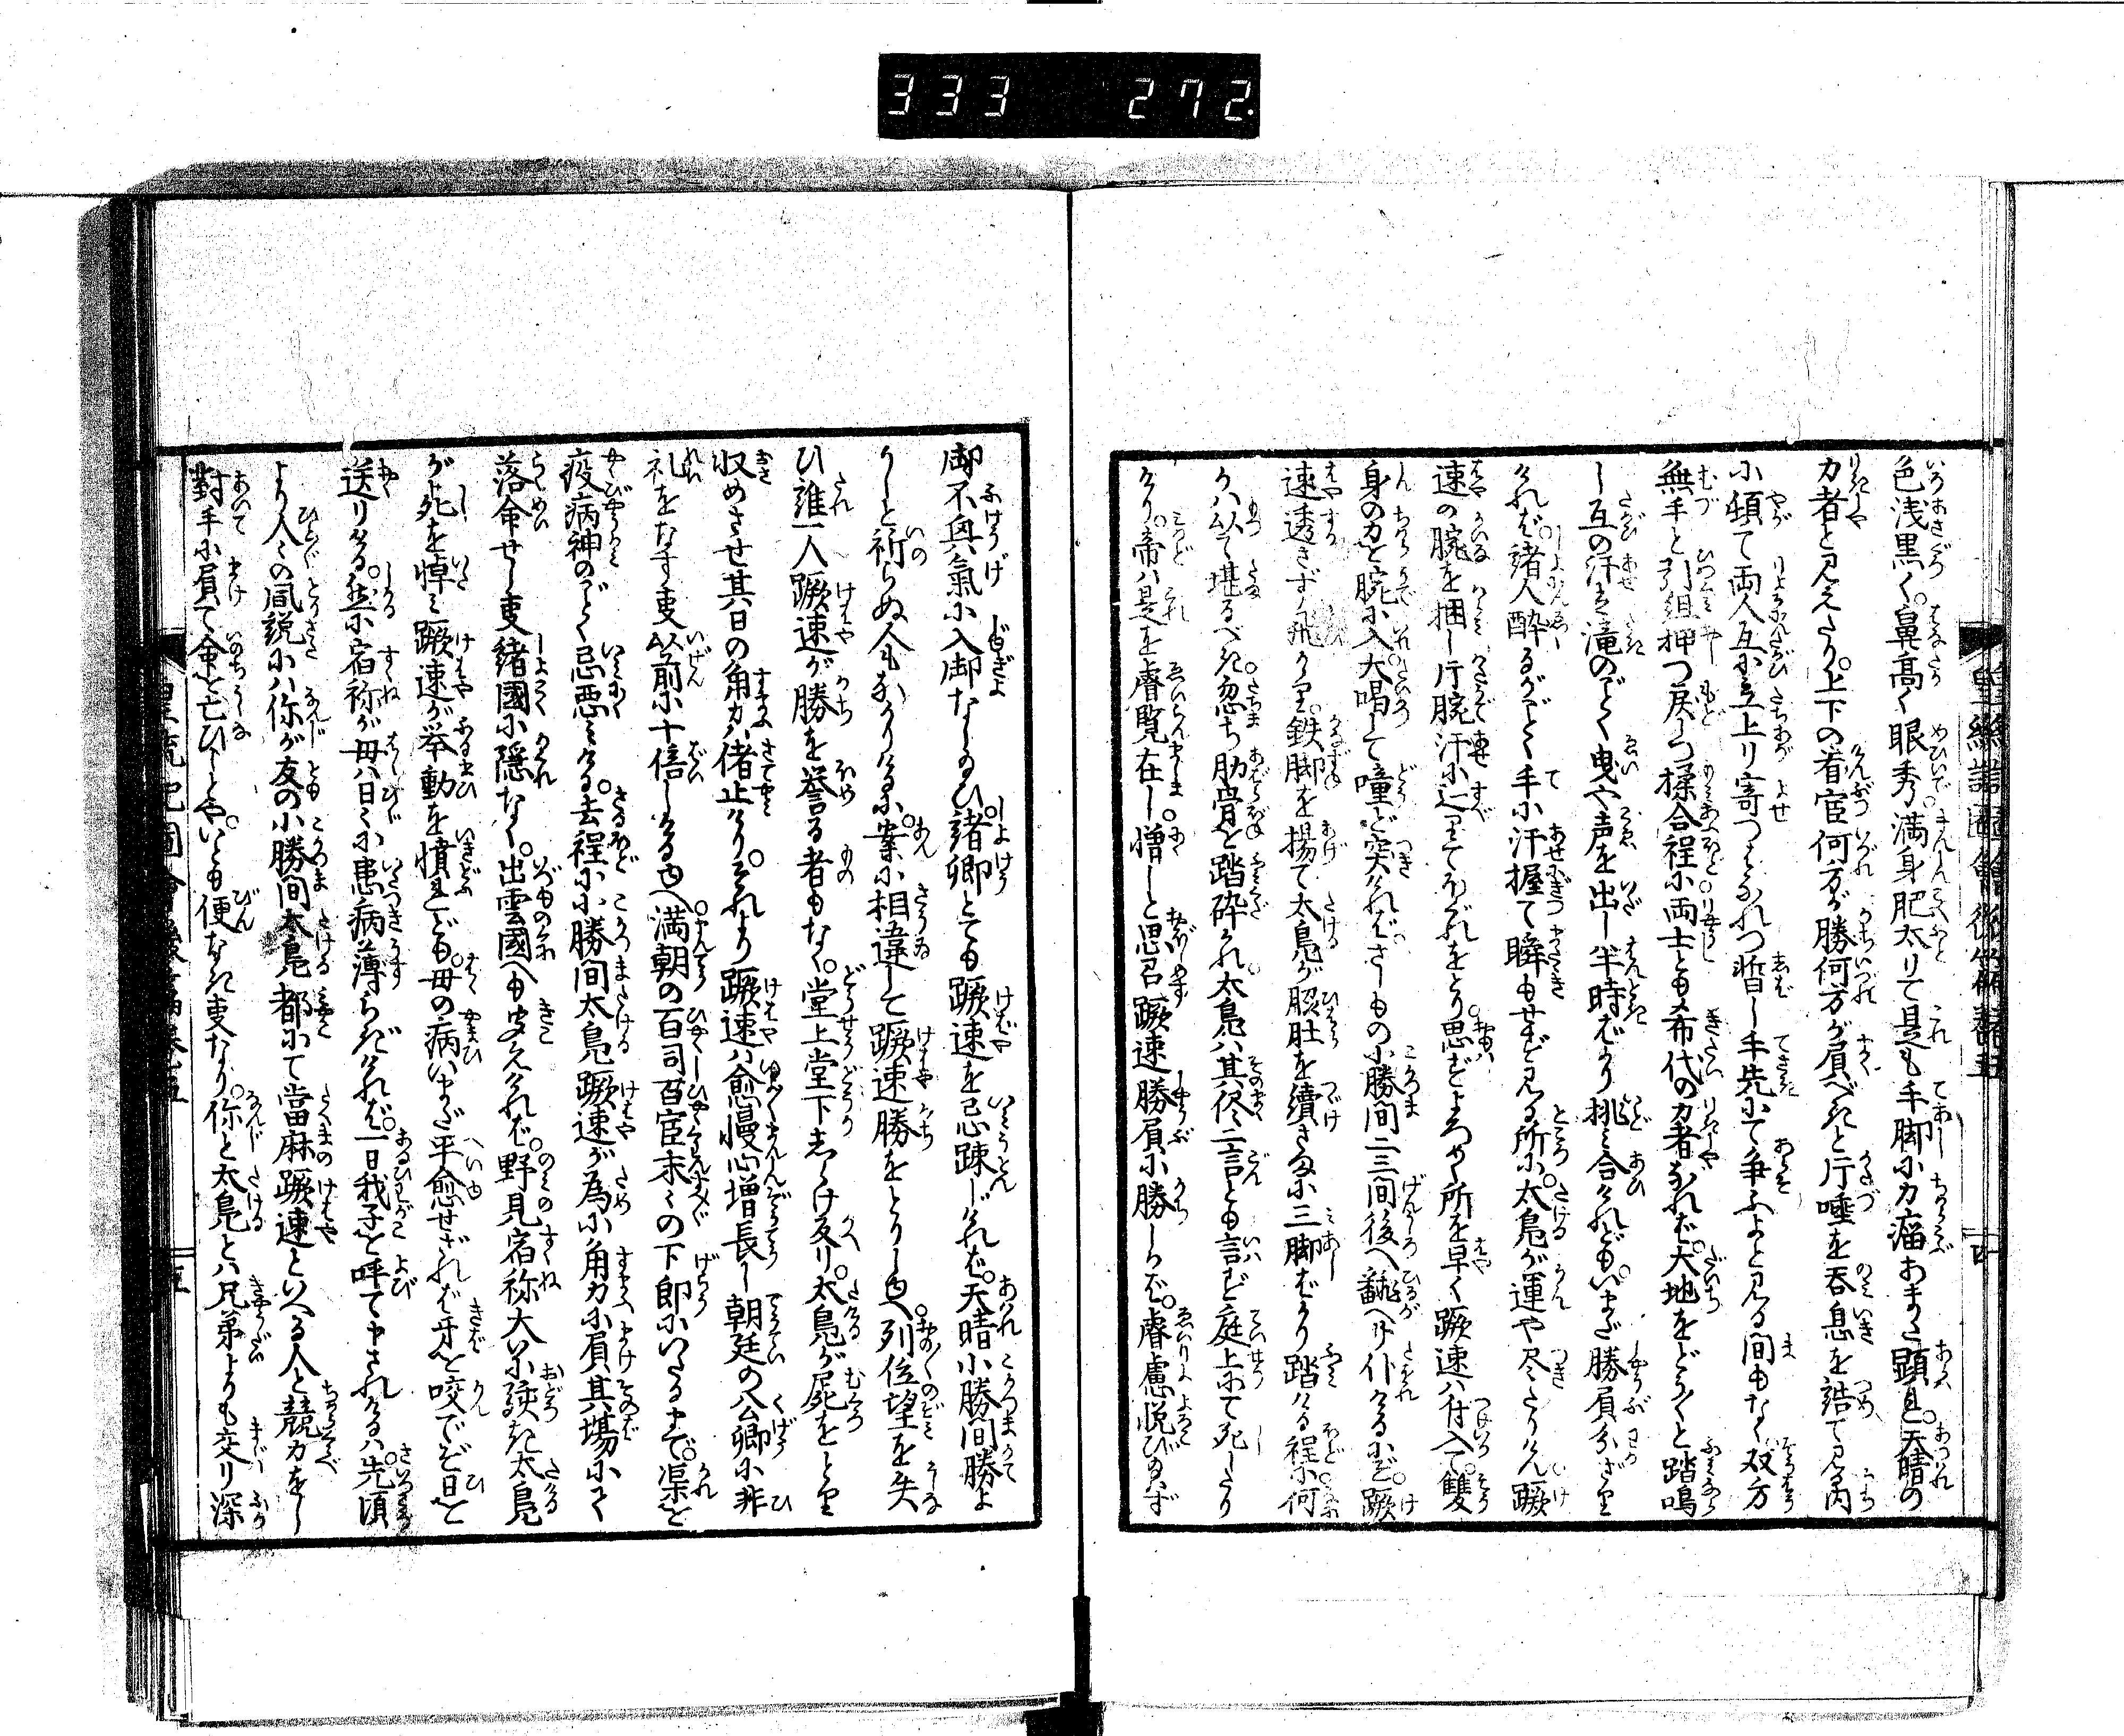 333 272
色浅黒く。鼻高く眼秀満身肥太りて是も手脚小力瘤あまた顕れ。天晴の
力者と見えたり。上下の着宦何方が勝何方が負べきと片唾を呑息を詰て見る内
小頓て両人互小立上り寄つはなれつ暫し手先小て争ふよと見る間もなく双方
無手と引組押つ戻つ揉合程小両士とも希代の力者なれば。大地をどう〳〵と踏鳴
し互の汗は滝のごとく曳や声を出し半時ばかり挑み合けれども。いまだ勝負分ざり
ければ諸人酔るがごとく手小汗握て瞬もせず見る所小。太鳧が運や尽たりけん蹶
速の腕を掴し片腕汗小辷りてはづれをとり思はずよろめく所を早く蹶速ハ付入て。雙
身の力を腕小入大喝して噇ど突ければさしもの小勝間二三間後へ飜へり仆けるを。蹶
速透さず飛かゝり。鉄脚を揚て太鳧が脇肚を續さま小三脚ばかり踏ける程小何
かハ以て堪るべき。忽ち肋骨を踏砕かれ。太鳧ハ其侭一言も言ず庭上小て死したり
けり。帝ハ是を睿覧在し。憎しと思召蹶速勝負小勝しかば。睿慮悦び給はず
御不興氣小入御なし給ひ。諸卿とても蹶速を忌疎じければ。天晴小勝間勝よ
かしと祈らぬ人もなかりける小。案小相違して蹶速勝をとりし由へ。列位望を失
ひ誰一人蹶速が勝を誉る者もなく。堂上堂下しらけ反り。太鳧が屍をとり
収めさせ其日の角力ハ偖止けり。それより蹶速ハ愈慢心増長し朝廷の公卿小非
礼をなす叓以前小十倍しける由へ。満朝の百司百宦末〻の下郎小いたるまで。渠を
疫病神のごとく忌悪みける。去程小小勝間太鳧蹶速が為小角力小負其場小て
落命せし叓緒國小隠なく。出雲國へも聞えければ。野見宿祢大い小駭き太鳧
が死を悼み蹶速が挙動を憤れども。母の病いまだ平愈せざれば牙を咬で空日を
送りける。然小宿祢が母ハ日〻小患病薄らぎければ。一日我子を呼て申されけるハ。先頃
より人〻の風説小ハ你が友の小勝間太鳧都小て當麻蹶速といへる人と競力をし
對手小負て命を亡ひしとや。いとも便なき叓なり。你と太鳧とハ兄弟よりも交り深